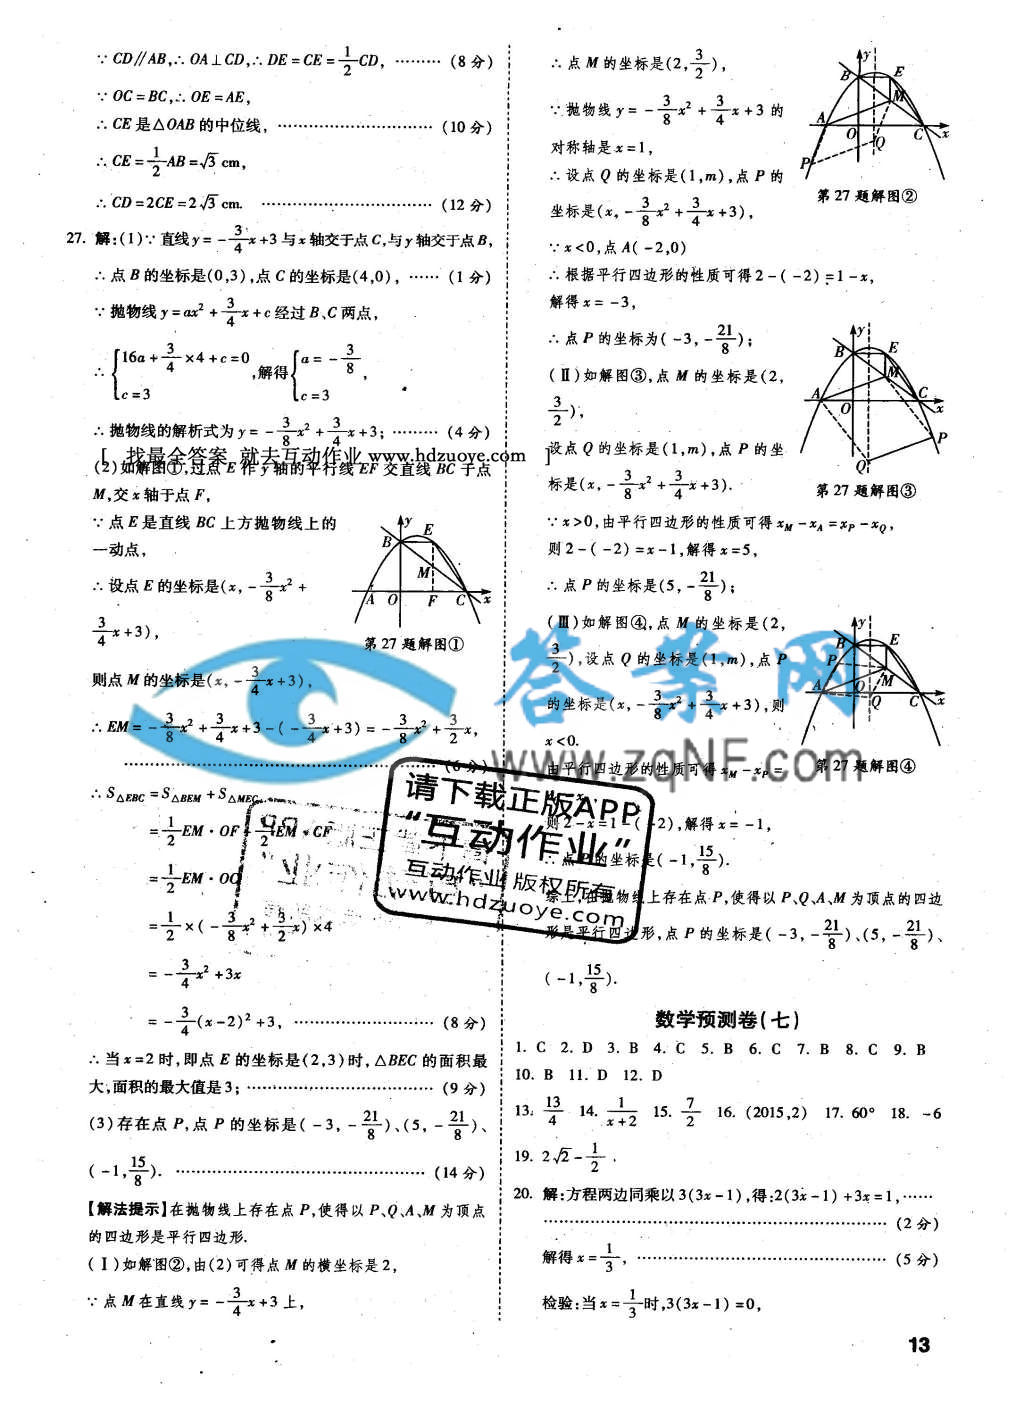 ∵ CD∥AB,∴ OA⊥CD,∴ DE=CE=1/2CD, ……… (8分)
∵ OC=BC,∴ OE=AE,
∴ CE是△OAB的中位线, ………………………… (10分)
∴ CE=1/2AB=√3 cm,
∴ CD=2CE=2√3 cm. …………………………… (12分)
27. 解:(1)∵直线y=-3/4x+3与x轴交于点C,与y轴交于点B,
∴点B的坐标是(0,3),点C的坐标是(4,0), …… (1分)
∵抛物线y=ax²+3/4x+c经过B、C两点,
∴{16a+3/4×4+c=0 c=3 ,解得{a=-3/8 c=3 ,
∴抛物线的解析式为y=-3/8x²+3/4x+3; ……… (4分)
[ 找最全答案 就去互动作业 www.hdzuoye.com ]
(2)如解图①,过点E作y轴的平行线EF交直线BC于点
M,交x轴于点F,
∵点E是直线BC上方抛物线上的
一动点,
∴设点E的坐标是(x,-3/8x²+
3/4x+3),
B y E M A O F C x
第27题解图①
则点M的坐标是(x,-3/4x+3),
∴ EM=-3/8x²+3/4x+3-(-3/4x+3)=-3/8x²+3/2x,
………………………………………………… (6分)
∴ S△EBC=S△BEM+S△MEC
=1/2EM·OF+1/2EM·CF
=1/2EM·OC
=1/2×(-3/8x²+3/2x)×4
=-3/4x²+3x
=-3/4(x-2)²+3, ……………………… (8分)
∴当x=2时,即点E的坐标是(2,3)时,△BEC的面积最
大,面积的最大值是3; ……………………………… (9分)
(3)存在点P,点P的坐标是(-3,-21/8)、(5,-21/8)、
(-1,15/8). ………………………………………… (14分)
【解法提示】在抛物线上存在点P,使得以P、Q、A、M为顶点
的四边形是平行四边形.
(Ⅰ)如解图②,由(2)可得点M的横坐标是2,
∵点M在直线y=-3/4x+3上,
∴点M的坐标是(2,3/2),
∵抛物线y=-3/8x²+3/4x+3的
对称轴是x=1,
∴设点Q的坐标是(1,m),点P的
坐标是(x,-3/8x²+3/4x+3),
B y E M A O C x Q P
第27题解图②
∵x<0,点A(-2,0)
∴根据平行四边形的性质可得2-(-2)=1-x,
解得x=-3,
∴点P的坐标为(-3,-21/8);
(Ⅱ)如解图③,点M的坐标是(2,
3/2),
设点Q的坐标是(1,m),点P的坐
标是(x,-3/8x²+3/4x+3).
B y E M A O C x P Q
第27题解图③
∵x>0,由平行四边形的性质可得x_M-x_A=x_P-x_Q,
则2-(-2)=x-1,解得x=5,
∴点P的坐标是(5,-21/8);
(Ⅲ)如解图④,点M的坐标是(2,
3/2),设点Q的坐标是(1,m),点P
的坐标是(x,-3/8x²+3/4x+3),则
x<0.
B y E P M A O Q C x
第27题解图④
由平行四边形的性质可得x_M-x_P=
则2-x=1-(-2),解得x=-1,
∴点P的坐标是(-1,15/8).
综上,在抛物线上存在点P,使得以P、Q、A、M为顶点的四边
形是平行四边形,点P的坐标是(-3,-21/8)、(5,-21/8)、
(-1,15/8).
数学预测卷(七)
1. C 2. D 3. B 4. C 5. B 6. C 7. B 8. C 9. B
10. B 11. D 12. D
13. 13/4 14. 1/(x+2) 15. 7/2 16. (2015,2) 17. 60° 18. -6
19. 2√2-1/2.
20. 解:方程两边同乘以3(3x-1),得:2(3x-1)+3x=1, ……
………………………………………………… (2分)
解得x=1/3, ………………………………………… (5分)
检验:当x=1/3时,3(3x-1)=0,
13
答案网
www.zqNF.com
请下载正版APP
“互动作业”
互动作业 版权所有
www.hdzuoye.com